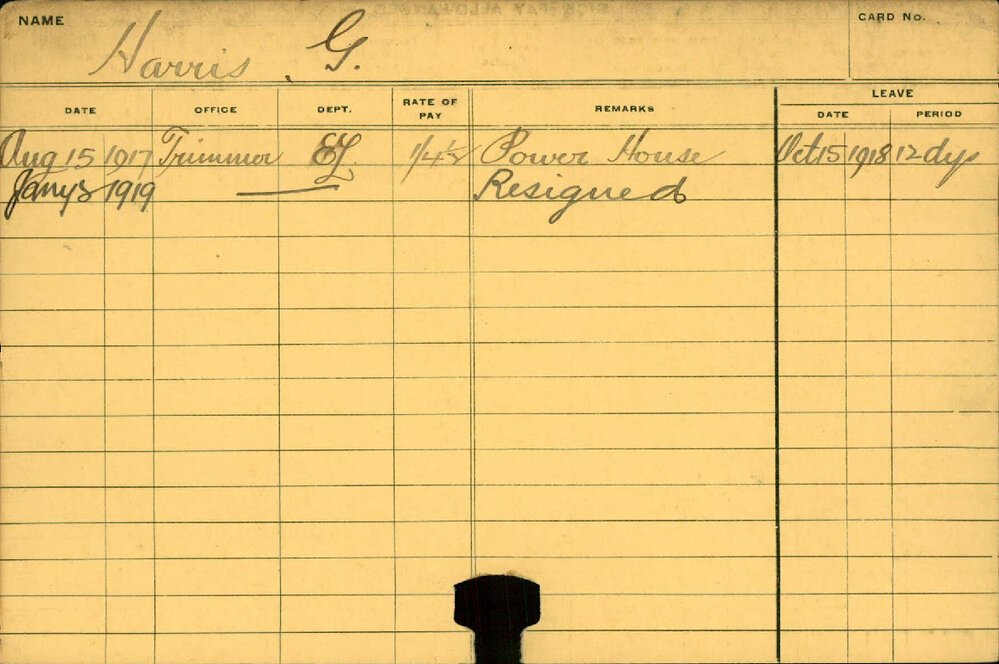 NAME
Harris, G.
CARD No.
DATE OFFICE DEPT. RATE OF PAY REMARKS LEAVE
DATE PERIOD
Aug 15 1917 Trimmer EL 1/4½ Power House Oct 15 1918 12 dys
Jany 3 1919 Resigned